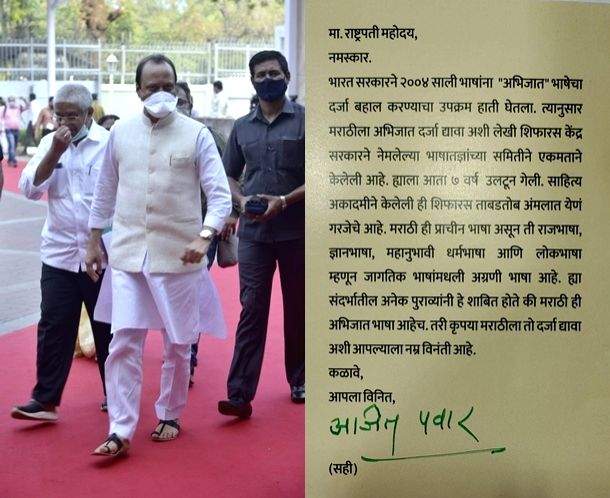 मा. राष्ट्रपती महोदय,
नमस्कार.
भारत सरकारने २००४ साली भाषांना "अभिजात" भाषेचा
दर्जा बहाल करण्याचा उपक्रम हाती घेतला. त्यानुसार
मराठीला अभिजात दर्जा द्यावा अशी लेखी शिफारस केंद्र
सरकारने नेमलेल्या भाषातज्ञांच्या समितीने एकमताने
केलेली आहे. ह्याला आता ७ वर्ष उलटून गेली. साहित्य
अकादमीने केलेली ही शिफारस ताबडतोब अंमलात येणं
गरजेचे आहे. मराठी ही प्राचीन भाषा असून ती राजभाषा,
ज्ञानभाषा, महानुभावी धर्मभाषा आणि लोकभाषा
म्हणून जागतिक भाषांमधली अग्रणी भाषा आहे. ह्या
संदर्भातील अनेक पुराव्यांनी हे शाबित होते की मराठी ही
अभिजात भाषा आहेच. तरी कृपया मराठीला तो दर्जा द्यावा
अशी आपल्याला नम्र विनंती आहे.
कळावे,
आपला विनित,
अजित पवार
(सही)